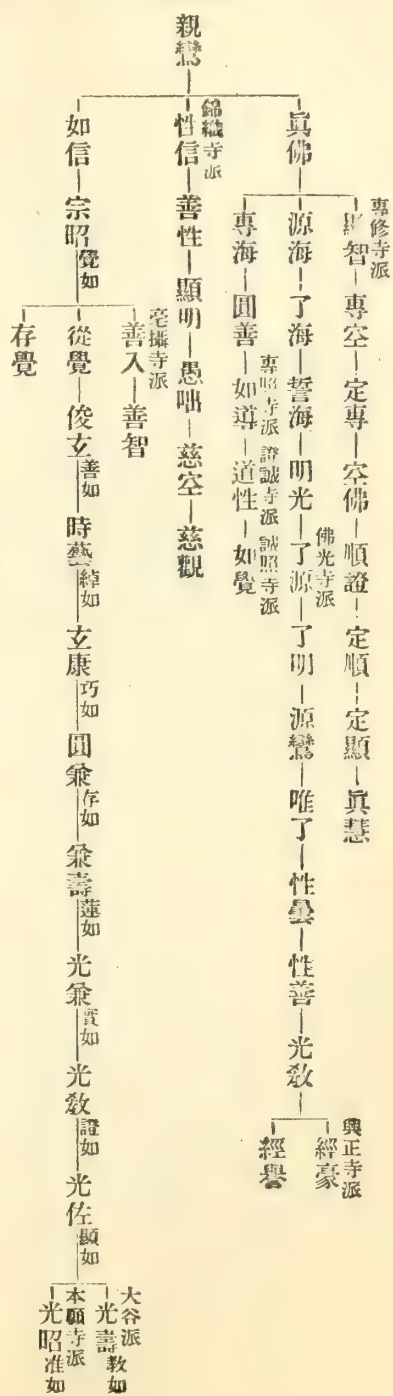 親鸞
眞佛
專修寺派
顯智 專空 定專 空佛 順證 定順 定顯 眞慧
源海 了海 誓海 明光 了源 了明 源鸞 唯了 性曇 性善 光敎
佛光寺派
興正寺派
經豪
經譽
專海 圓善 如導 道性 如覺
專照寺派 證誠寺派 誠照寺派
錦織寺派
性信 善性 顯明 愚咄 慈空 慈觀
如信 宗昭覺如
毫攝寺派
善入 善智
從覺 俊玄善如 時藝綽如 玄康巧如 圓兼存如 兼壽蓮如 光兼實如 光敎證如 光佐顯如
大谷派
光壽敎如
本願寺派
光昭准如
存覺